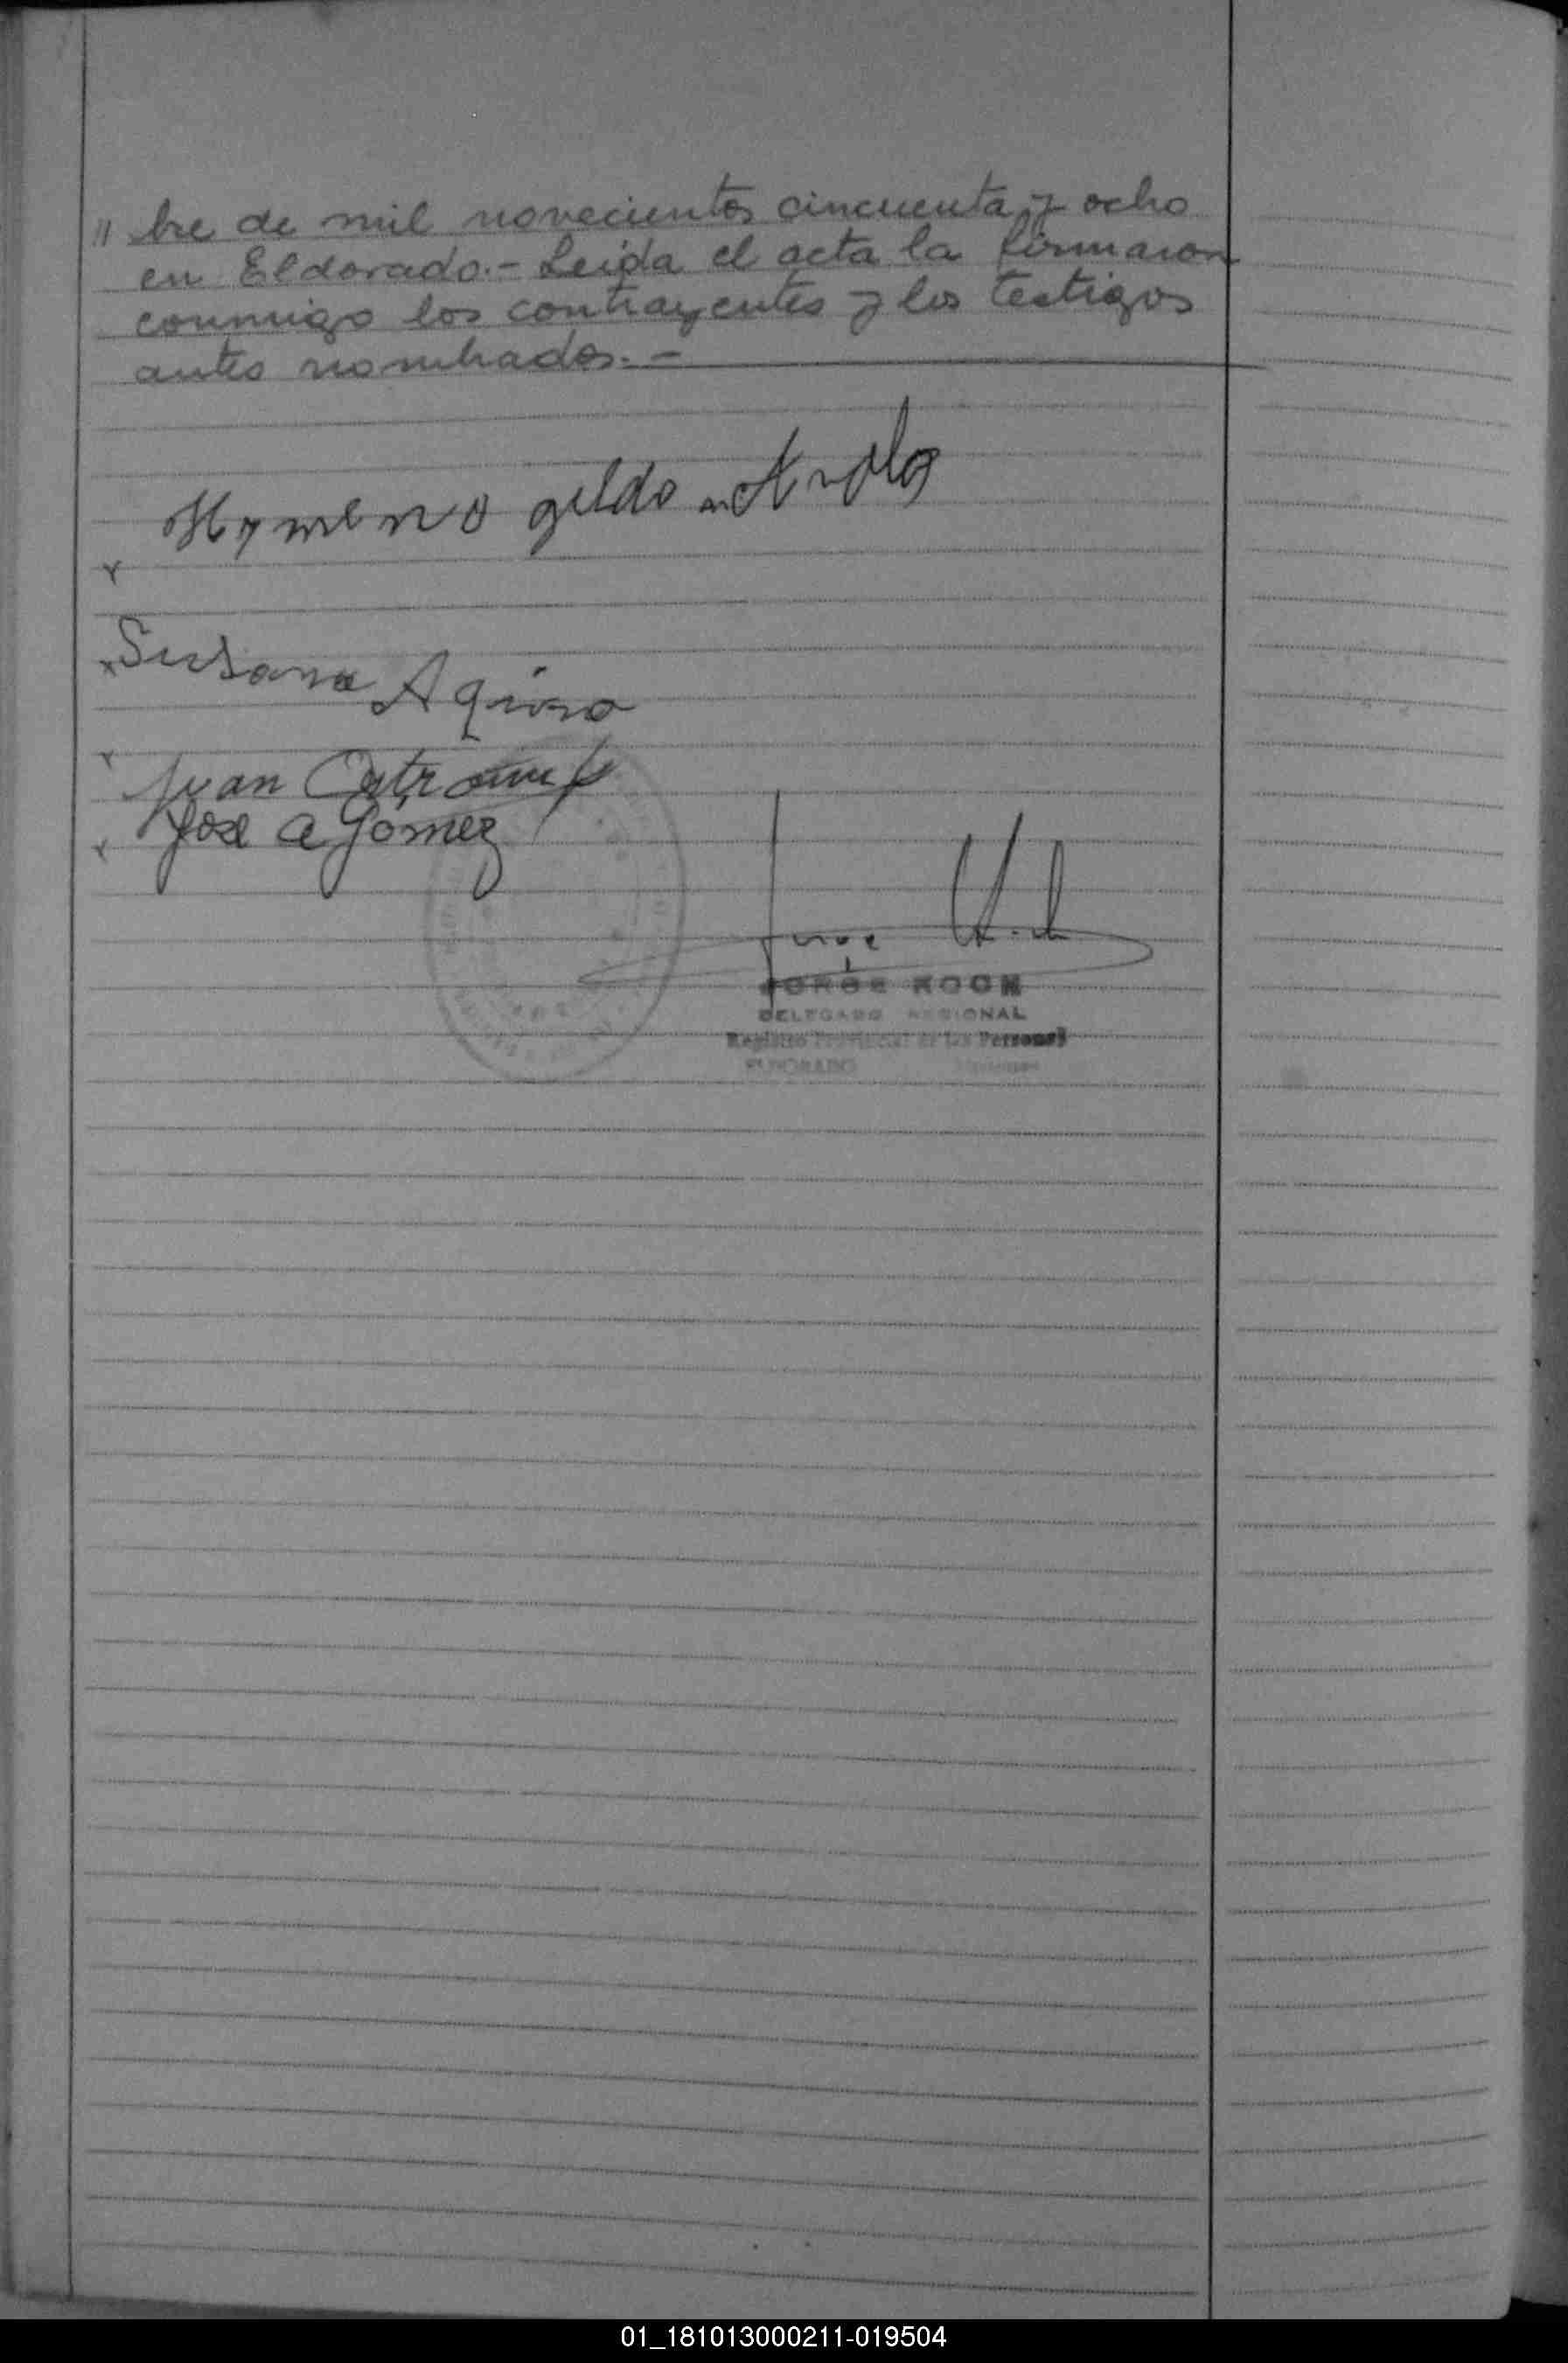 " bre de mil novecientos cincuenta y ocho
en Eldorado.- Leida el acta la firmaron
conmigo los contrayentes y los testigos
antes nombrados.-
gildo
Susana Aquino
Juan
Jose A Gomez
Jorge
JORGE KOCH
DELEGADO REGIONAL
Registro Provincial de las Personas
ELDORADO Misiones
01_181013000211-019504